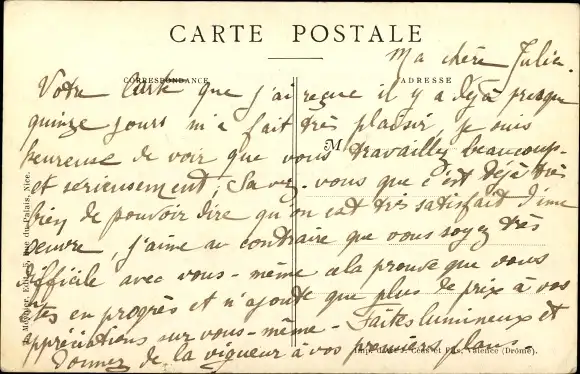 CARTE POSTALE
CORRESPONDANCE
ADRESSE
M
Ma chère Julie.
Votre carte que j'ai reçue il y a déjà presque
quinze jours m'a fait très plaisir, je suis
heureuse de voir que vous travaillez beaucoup
et sérieusement, Savez-vous que c'est déjà très
bien de pouvoir dire qu'on est très satisfait d'une
oeuvre, j'aime au contraire que vous soyez très
difficile avec vous-même cela prouve que vous
êtes en progrès et n'ajoute que plus de prix à vos
appréciations sur vous-même - Faites lumineux et
Donnez de la vigueur à vos premiers plans -
Rue du Palais, Nice.
Valence (Drôme).